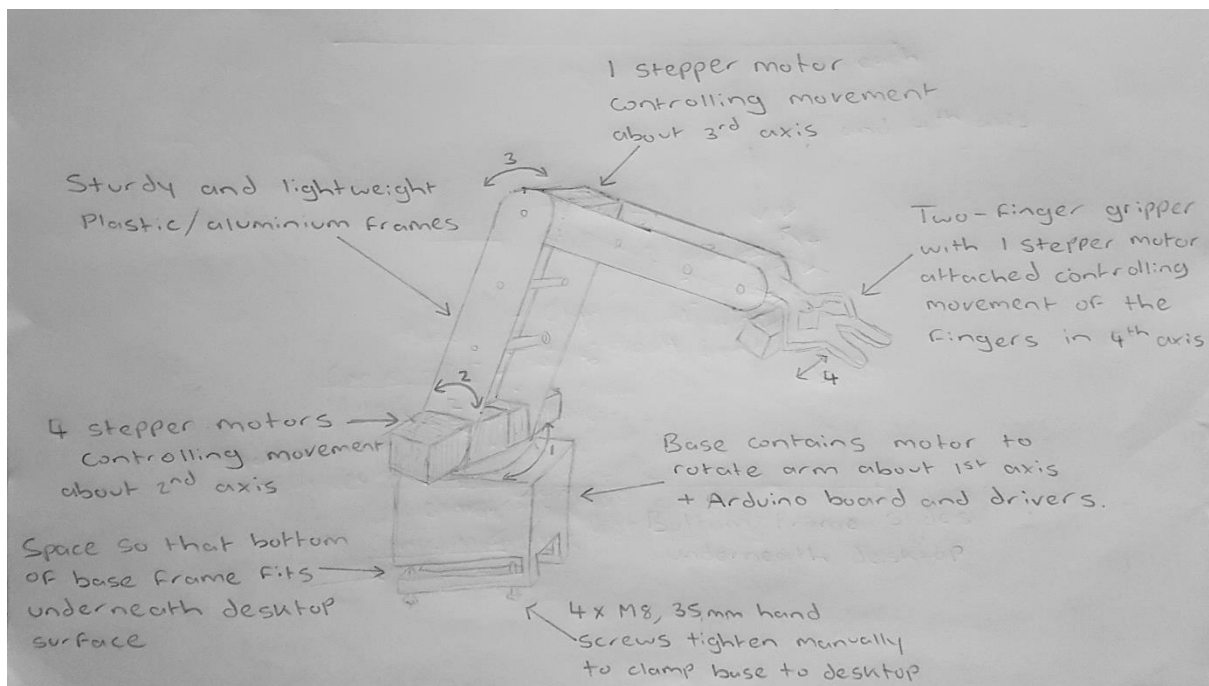 1 stepper motor
controlling movement
about 3rd axis
3
Sturdy and lightweight
Plastic/aluminium frames
Two-finger gripper
with 1 stepper motor
attached controlling
movement of the
fingers in 4th axis
2
4
4 stepper motors
controlling movement
about 2nd axis
1
Base contains motor to
rotate arm about 1st axis
+ Arduino board and drivers.
Space so that bottom
of base frame fits
underneath desktop
surface
4 x M8, 35mm hand
screws tighten manually
to clamp base to desktop